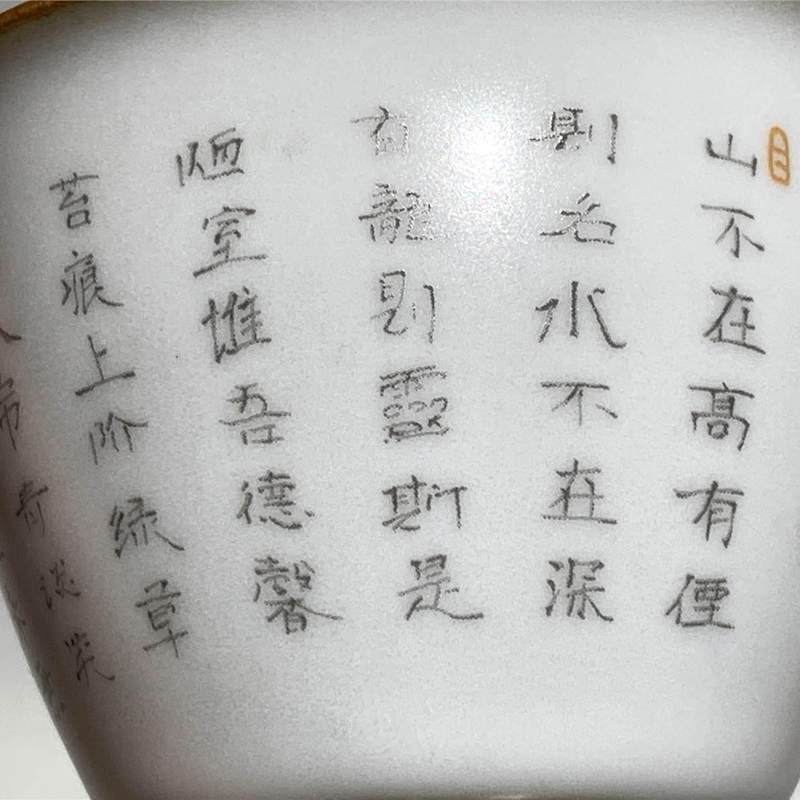 山不在髙有僊
則名水不在深
有龍則靈斯是
陋室惟吾德馨
苔痕上阶绿草
帘青谈笑